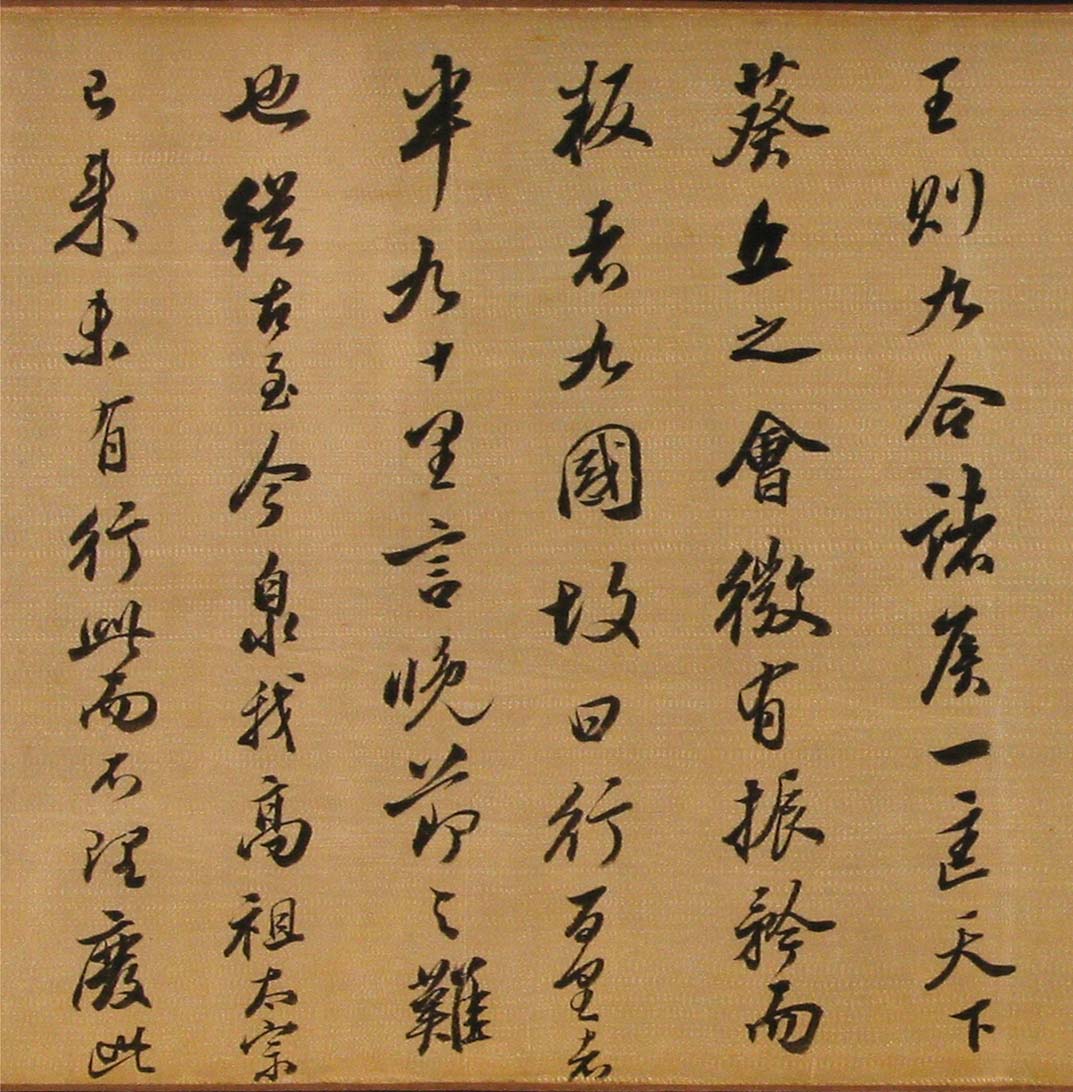 王則九合諸侯一匡天下
葵丘之會微有振矜而
叛者九國故曰行百里者
半九十里言晚節之難
也從古至今泉我高祖太宗
已來未有行此而不理廢此